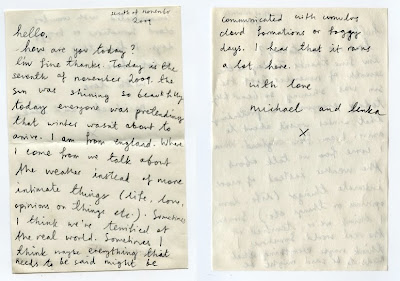 seventh of november
2009
hello.
how are you today?
i'm fine thanks. Today is the
seventh of november 2009. the
sun was shining so beautifully
today everyone was pretending
that winter wasn't about to
arrive. I am from england. Where
I come from we talk about
the weather instead of more
intimate things (life, love,
opinions on things etc.). Sometimes
I think we're terrified of
the real world. Sometimes I
think maybe everything that
needs to be said might be
communicated with cumulus
cloud formations or foggy
days. I hear that it rains
a lot here.
with love
michael and
x